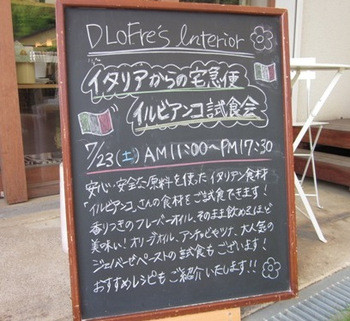 DLoFre's Interior
イタリアからの宅急便
イルビアンコ試食会
7/23(土) AM11:00〜PM17:30
安心・安全な原料を使ったイタリアン食材
「イルビアンコ」さんの食材をご試食できます!
香りつきのフレーバーオイル、そのまま飲めるほど
美味い!オリーブオイル、アンチョビやツナ、大人気の
ジェノバーゼペーストの試食もございます!
おすすめレシピもご紹介いたします!!